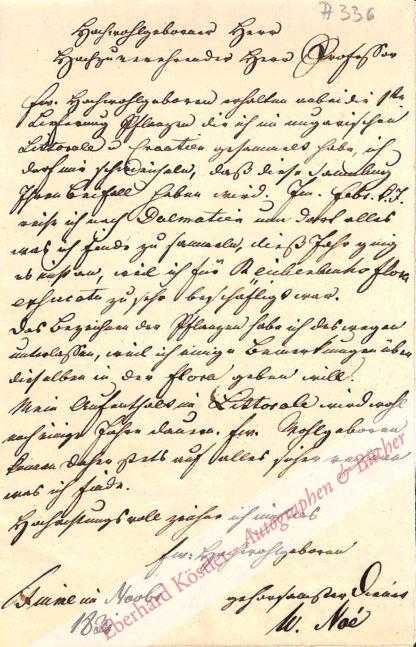 A 336
Hochwohlgeborner Herr
Hochzuverehrender Herr Professor
Ew. Hochwohlgeboren erhalten anbei die 1te
Lieferung Pflanzen die ich im ungarischen
Littorale u Croatien gesammelt habe, ich
darf mir schmeicheln, daß diese Sammlung
Ihren Beifall haben wird. Im Febr. k.J.
reise ich nach Dalmatien um dort alles
was ich finde zu sammeln, dieß Jahr ging
es nicht an, weil ich für Reichenbachs flora
exsiccata zu sehr beschäftigt war.
Das Bezeichnen der Pflanzen habe ich deswegen
unterlassen, weil ich einige Bemerkungen über
dieselben in der flora geben will.
Mein Aufenthalt im Littorale wird wohl
noch einige Jahre dauern. Ew. Wohlgeboren
können daher stets auf alles sicher rechnen
was ich finde.
Hochachtungsvoll zeichne ich mich als
Ew. Hochwohlgeboren
Fiume im Novbr
183
gehorsamster Diener
W. Noé
Eberhard Köstler Autographen & Bücher